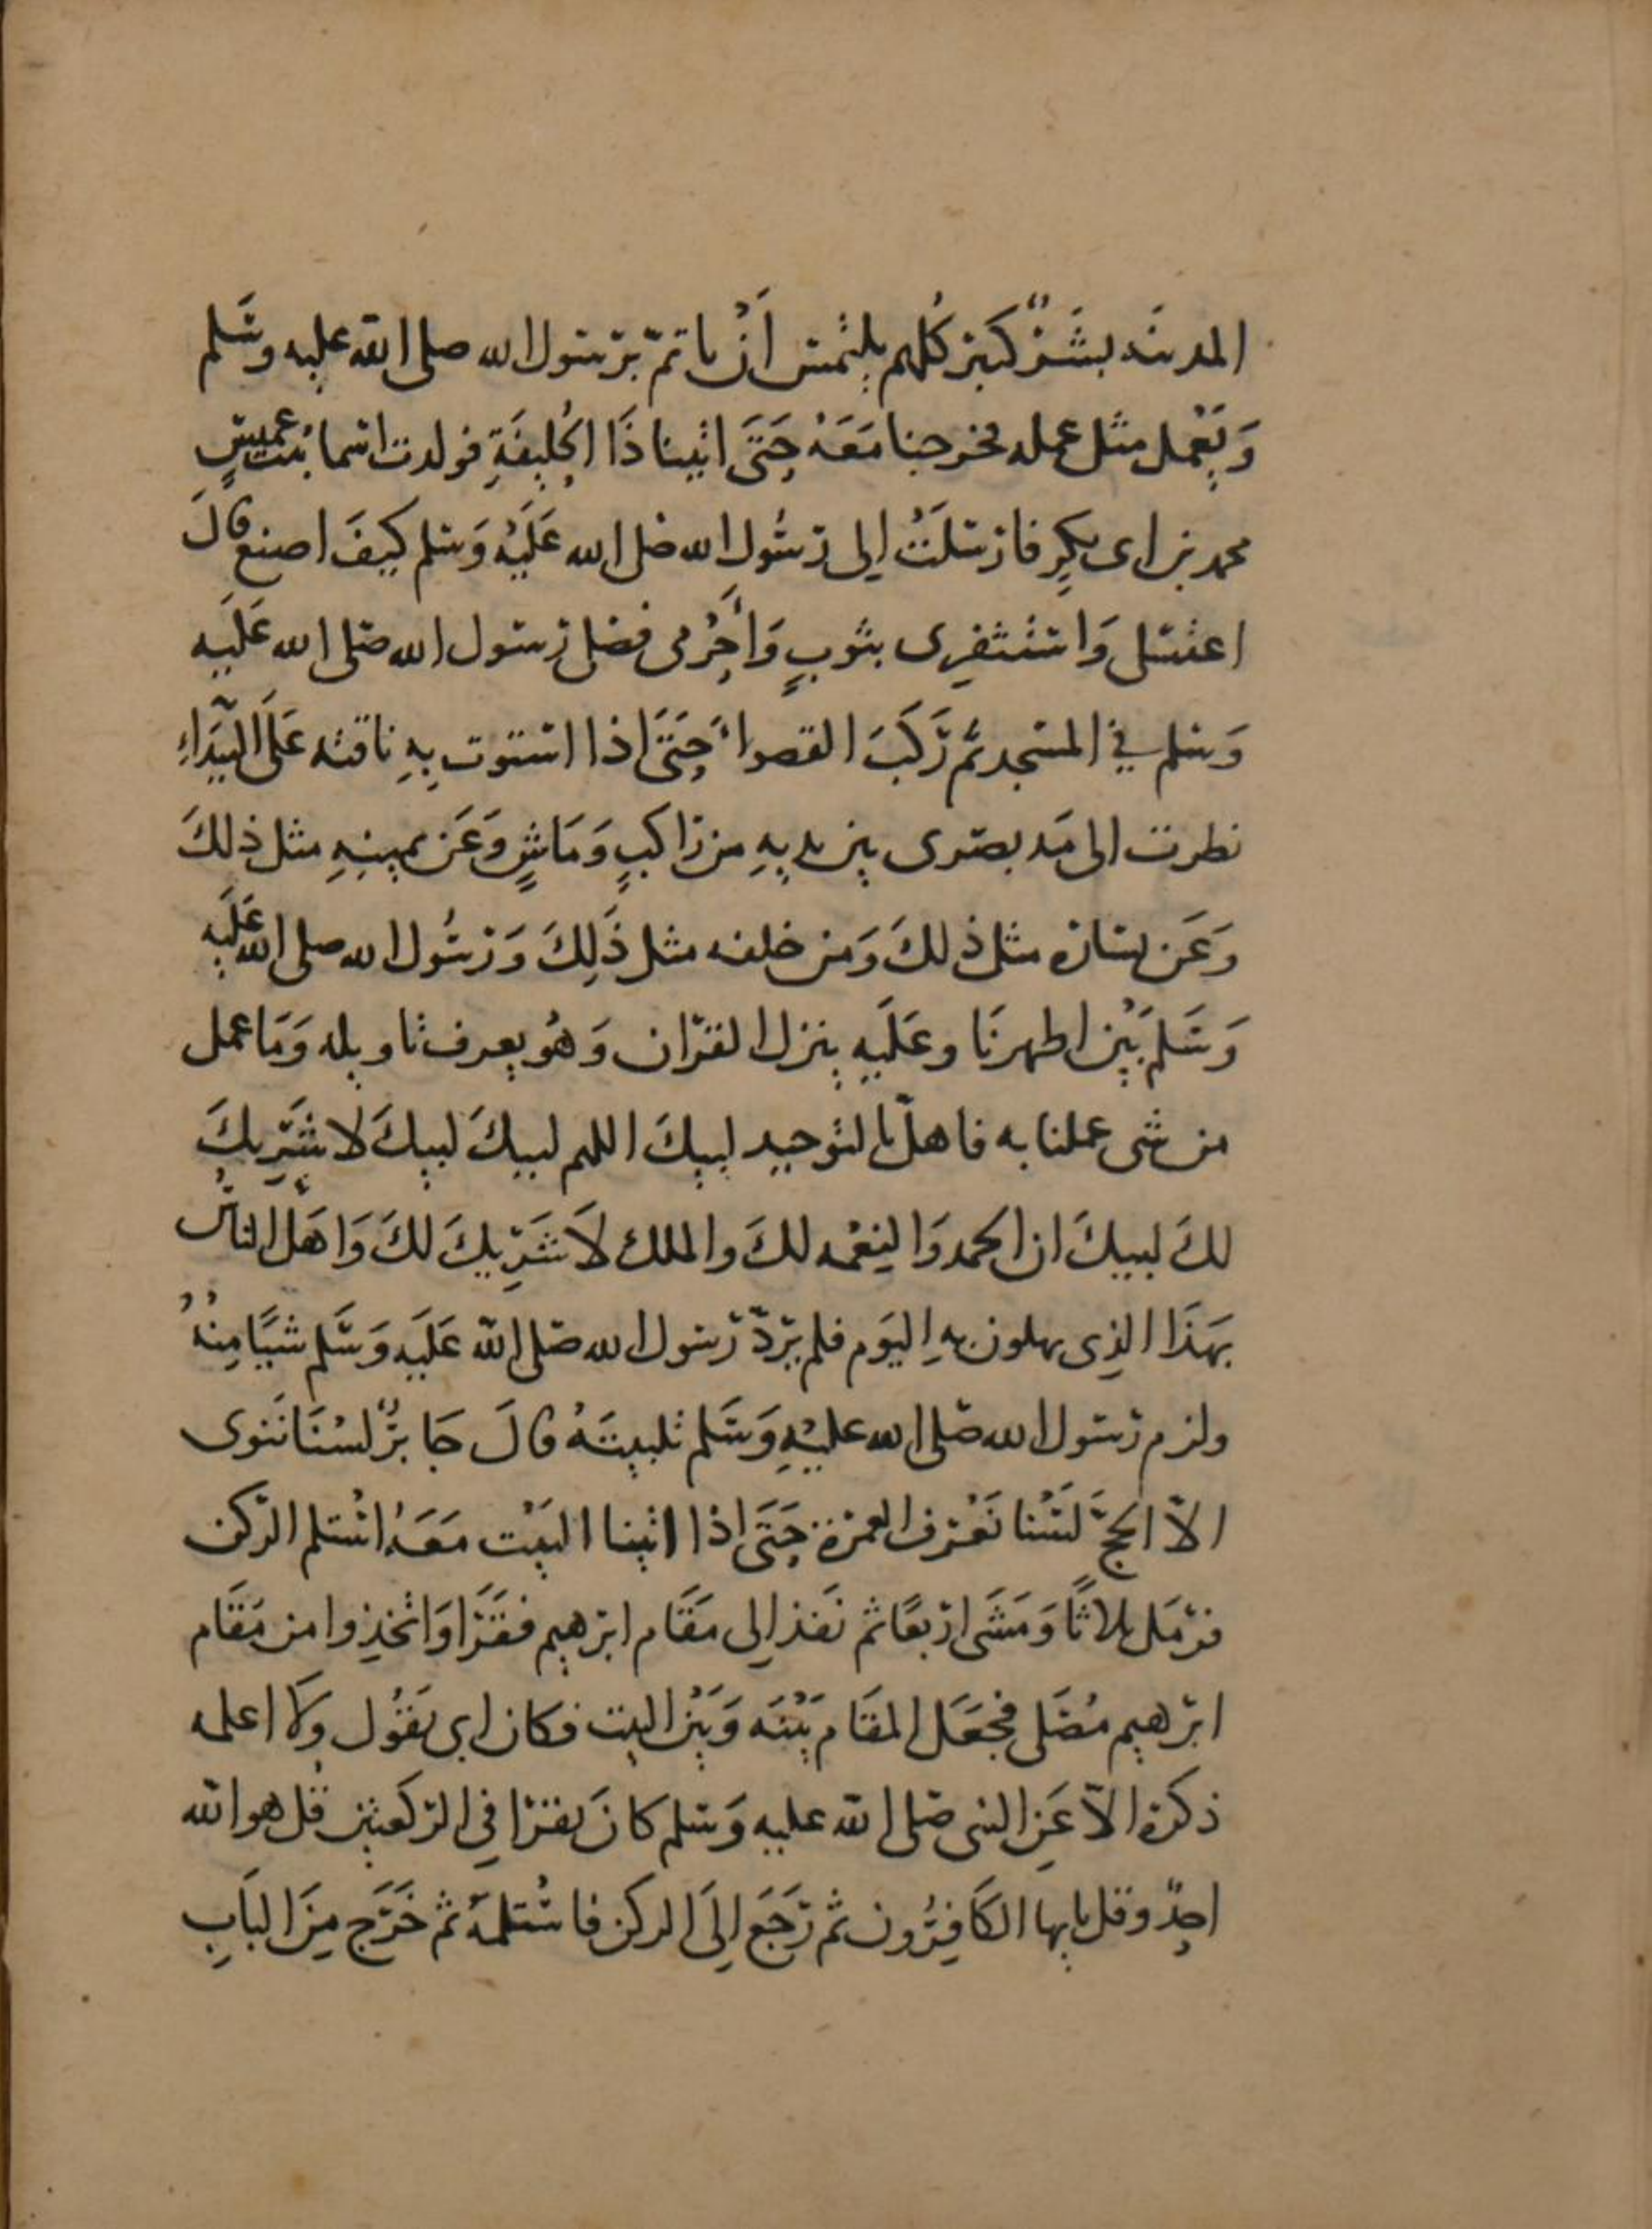 المدينة بشر كبير كلهم يلتمس أن ياتم برسول الله صلى الله عليه وسلم
وَيَعْمل مثل عمله فخرجنا مَعَهُ حَتَّى اتينا ذَا الحُليفَةِ فولدت اسما بنت عميسٍ
محمد بن ابى بكرٍ فارسلَتْ إلى رسُول الله صلى الله عَلَيْهِ وَسلم كيفَ اصنع قالَ
اغتسلى وَاستثفرى بثوبٍ وَأحْرمى فصلى رسول الله صلى الله عَلَيه
وَسلم في المسجد ثم رَكَبَ القصواء حَتَّى اذا استوت بِهِ ناقته عَلَى البَيدَاءِ
نظرت الى مَد بصرى بين يديهِ من راكبٍ وَمَاشٍ وَعَن يمينِهِ مثل ذلكَ
وَعَن يساره مثل ذلكَ وَمن خلفه مثل ذَلِكَ وَرسُول الله صلى الله عَلَيه
وَسَلم بَيْن اظهرنَا وعَلَيهِ ينزل القرآن وَهُو يعرف تاويله وَمَا عمل
من شى عملنا به فاهلّ بالتوحيد لبيكَ اللهم لبيكَ لبيكَ لا شَرِيكَ
لكَ لبيكَ ان الحمد وَالنِعْمه لكَ والملك لاَ شَرِيكَ لكَ وَاهَلَّ الناسُ
بهَذَا الذِى يهلون بهِ اليَوم فلم يَردّ رسول الله صلى الله عَلَيه وَسَلم شيًا مِنْهُ
ولزم رسول الله صلى الله عليْهِ وَسَلم تلبيتَهُ قالَ جَابرٌ لسْنَا نَنوى
الاّ الحجَّ لَسْنا نَعْرف العمرة حَتَّى اذا اتينا البَيْت مَعَهُ اسْتلم الركن
فرَمَل ثلاثًا وَمَشَى ارْبعًا ثم نَفَذ إلى مَقَام ابرٰهيم فقَرَا وَاتخِذوا من مَقَام
ابرٰهيم مُصَلى فجَعَل المقَام بَيْنَه وَبَيْن البيت فكان ابى يقُول وَلا اعلمه
ذكره الاّ عَنِ النبى صلى الله عليه وَسلم كانَ يقرا فِى الركعتين قُل هو الله
احدٌ وقل يايها الكَافِرُون ثم رَجَعَ إلَى الركن فاسْتلمهُ ثم خَرَج مِنَ البَابِ